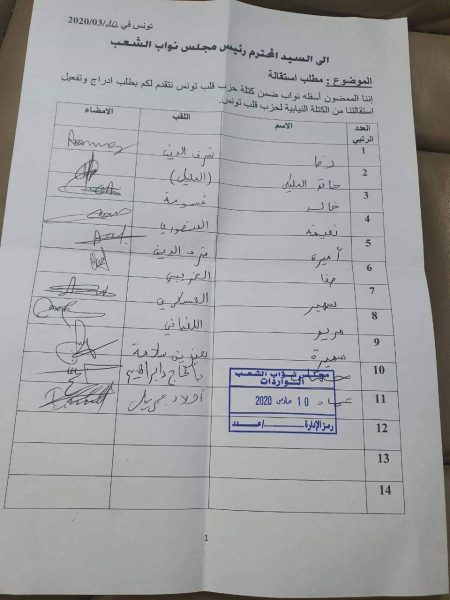 تونس في 2020/03/
الى السيد المحترم رئيس مجلس نواب الشعب
الموضوع : مطلب استقالة
إننا الممضون أسفله نواب ضمن كتلة حزب قلب تونس نتقدم لكم بطلب ادراج وتفعيل
استقالتنا من الكتلة النيابية لحزب قلب تونس.
العدد الرتبي الأسم اللقب الامضاء
1 رضا شرف الدين
2 حاتم المليكي (المليكي)
3 خالد قسومة
4 نعيمة المنصوري
5 أميرة شرف الدين
6 صفا الغريبي
7 سهير العسكري
8 مريم اللغماني
9 سميرة بن سلامة
10 بلحاج ابراهيم
11 عماد أولاد جبريل
12
13
14
مجلس نواب الشعب
الواردات
10 مارس 2020
رمز الإدارة/........عدد
1